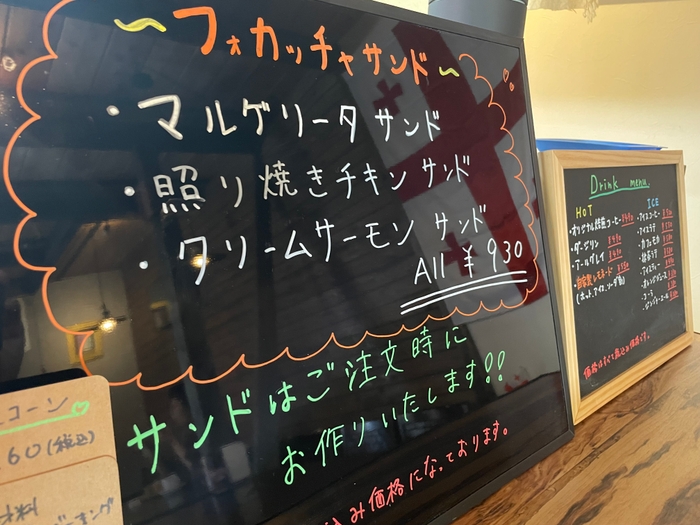 ~フォカッチャサンド~
・マルゲリータ サンド
・照り焼きチキン サンド
・クリームサーモン サンド
All ¥930
サンドはご注文時に
お作りいたします!!
み価格になっております。
コーン
60(税込)
Drink menu.
HOT
・オリジナル焙煎コーヒー
・ダージリン
・アールグレイ
・自家製レモネード
(ホット、アイス、ソーダ割)
ICE
・アイスコーヒー
・アイスラテ
・カフェモカ
・アイスティー
・オレンジジュース
・コーラ
・ジンジャーエール
価格はすべて税込み価格です。